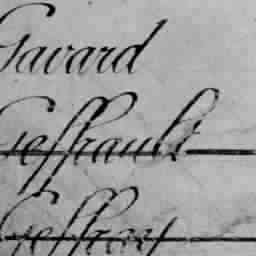 Gavard
Geffrault
Geffroy